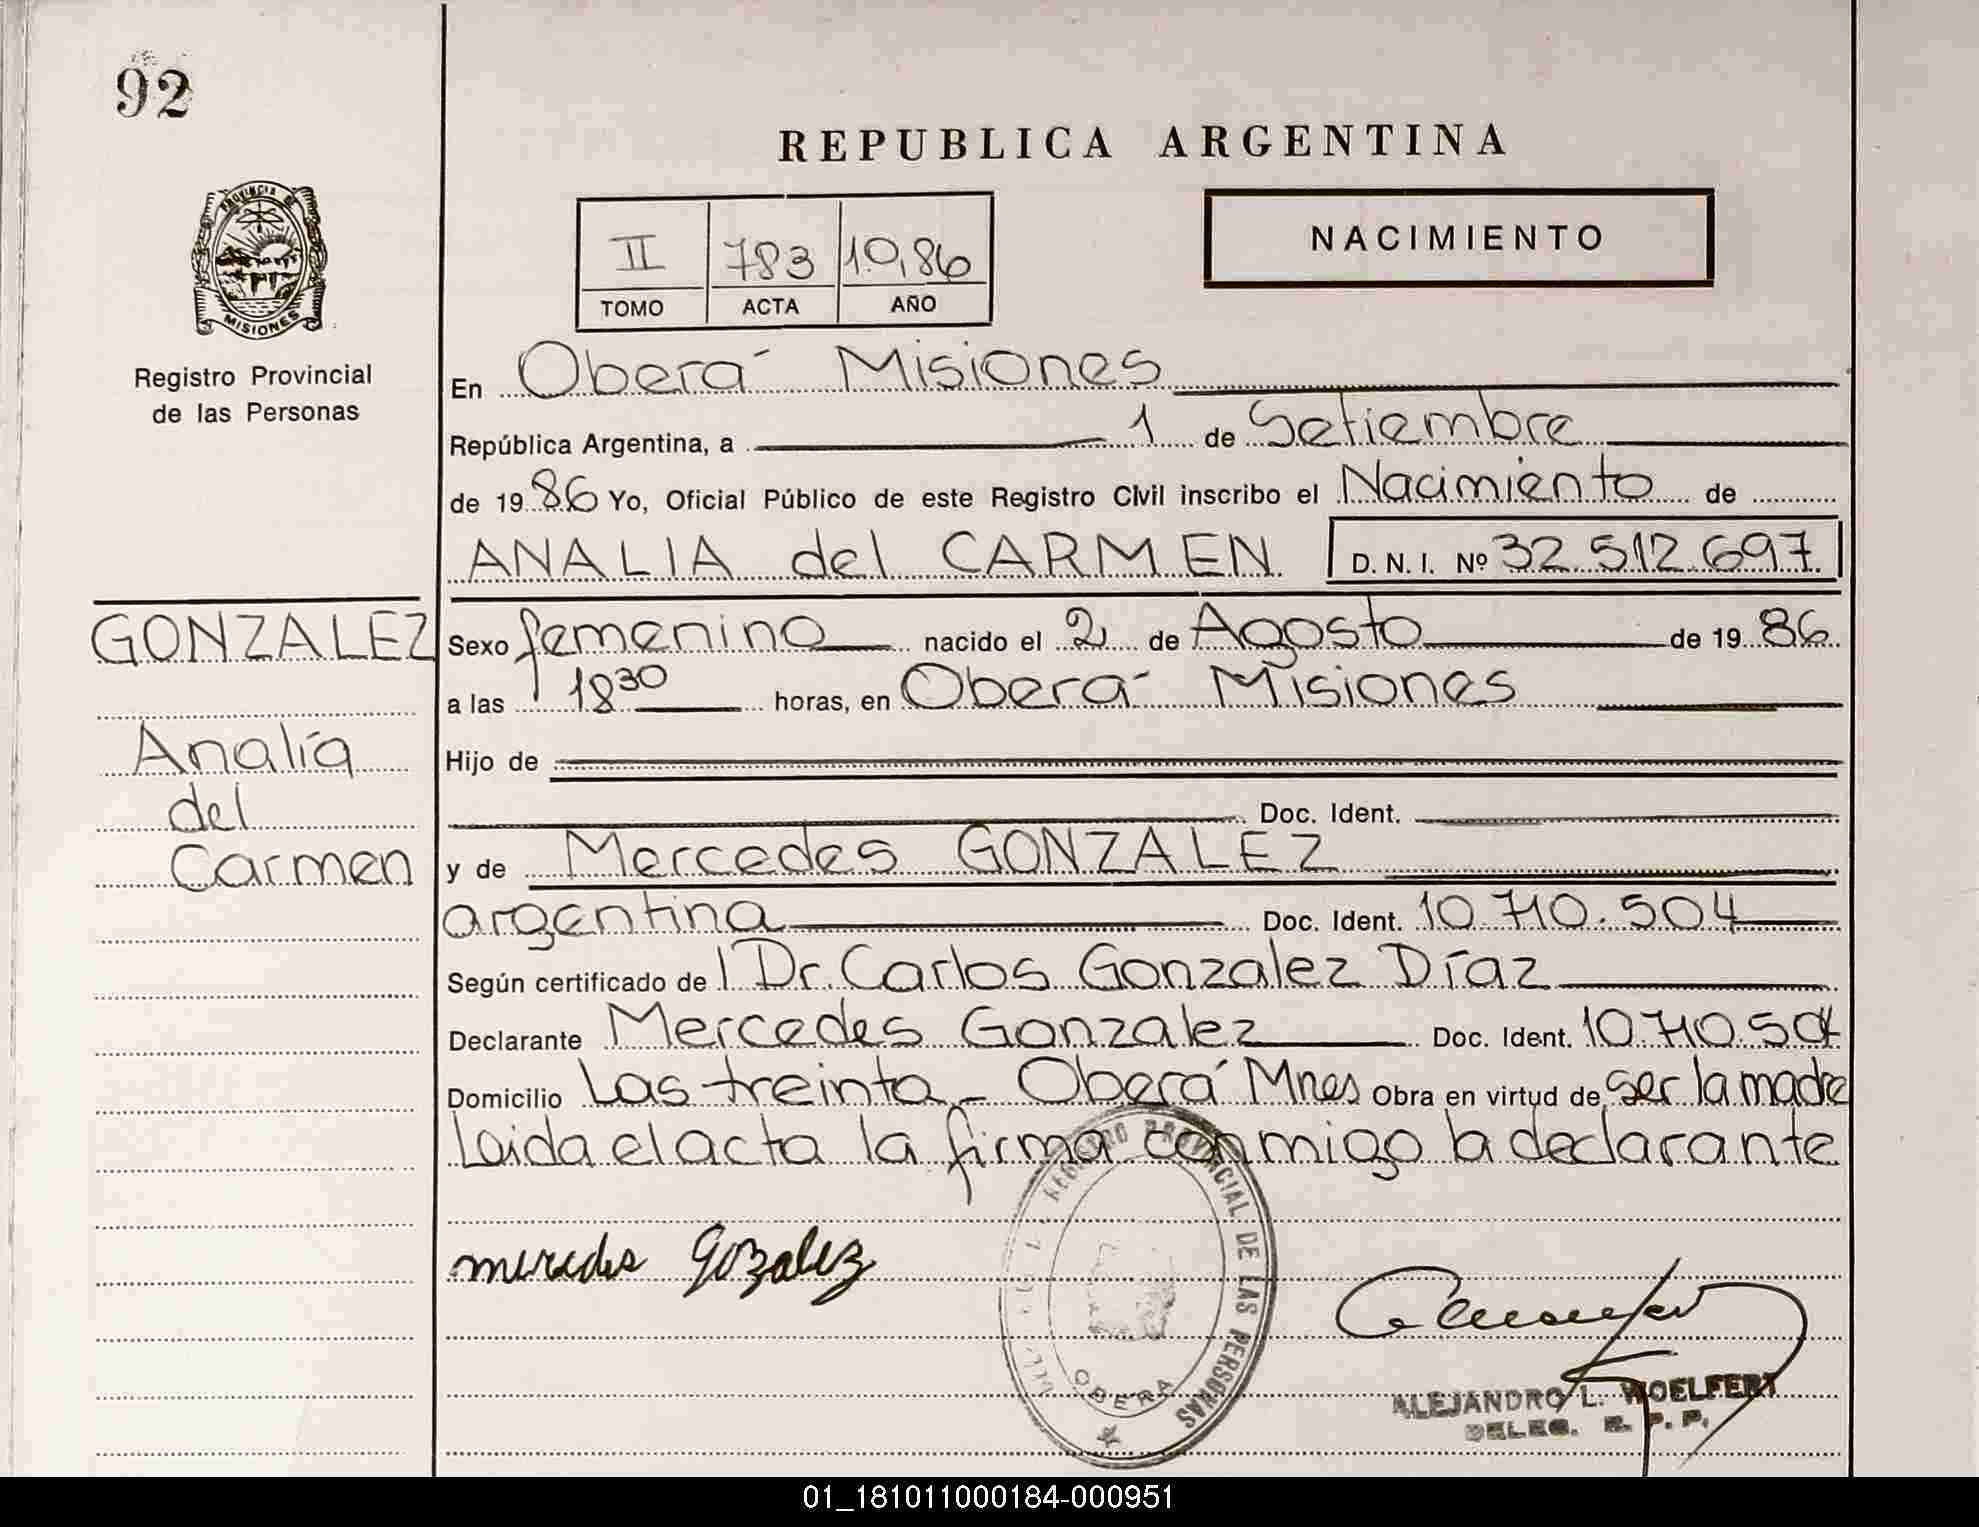 92
REPUBLICA ARGENTINA
PROVINCIA DE
MISIONES
Registro Provincial
de las Personas
II 783 1.0,86
TOMO ACTA AÑO
NACIMIENTO
En Oberá Misiones
República Argentina, a 1 de Setiembre
de 19 86 Yo, Oficial Público de este Registro Civil inscribo el Nacimiento de
ANALIA del CARMEN D. N. I. Nº 32.512.697
GONZALEZ
Analía
del
Carmen
Sexo femenino nacido el 2 de Agosto de 19 86
a las 18 30 horas, en Oberá Misiones
Hijo de
Doc. Ident.
y de Mercedes GONZALEZ
argentina Doc. Ident. 10.710.504
Según certificado de l Dr. Carlos Gonzalez Díaz
Declarante Mercedes Gonzalez Doc. Ident. 10.710.504
Domicilio Las treinta - Oberá Mnes Obra en virtud de ser la madre
Leida el acta la firma conmigo la declarante
REGISTRO PROVINCIAL DE LAS PERSONAS
OBERA
mercdes gozalez
ALEJANDRO L. WOELFERT
DELEG. R. P. P.
01_181011000184-000951